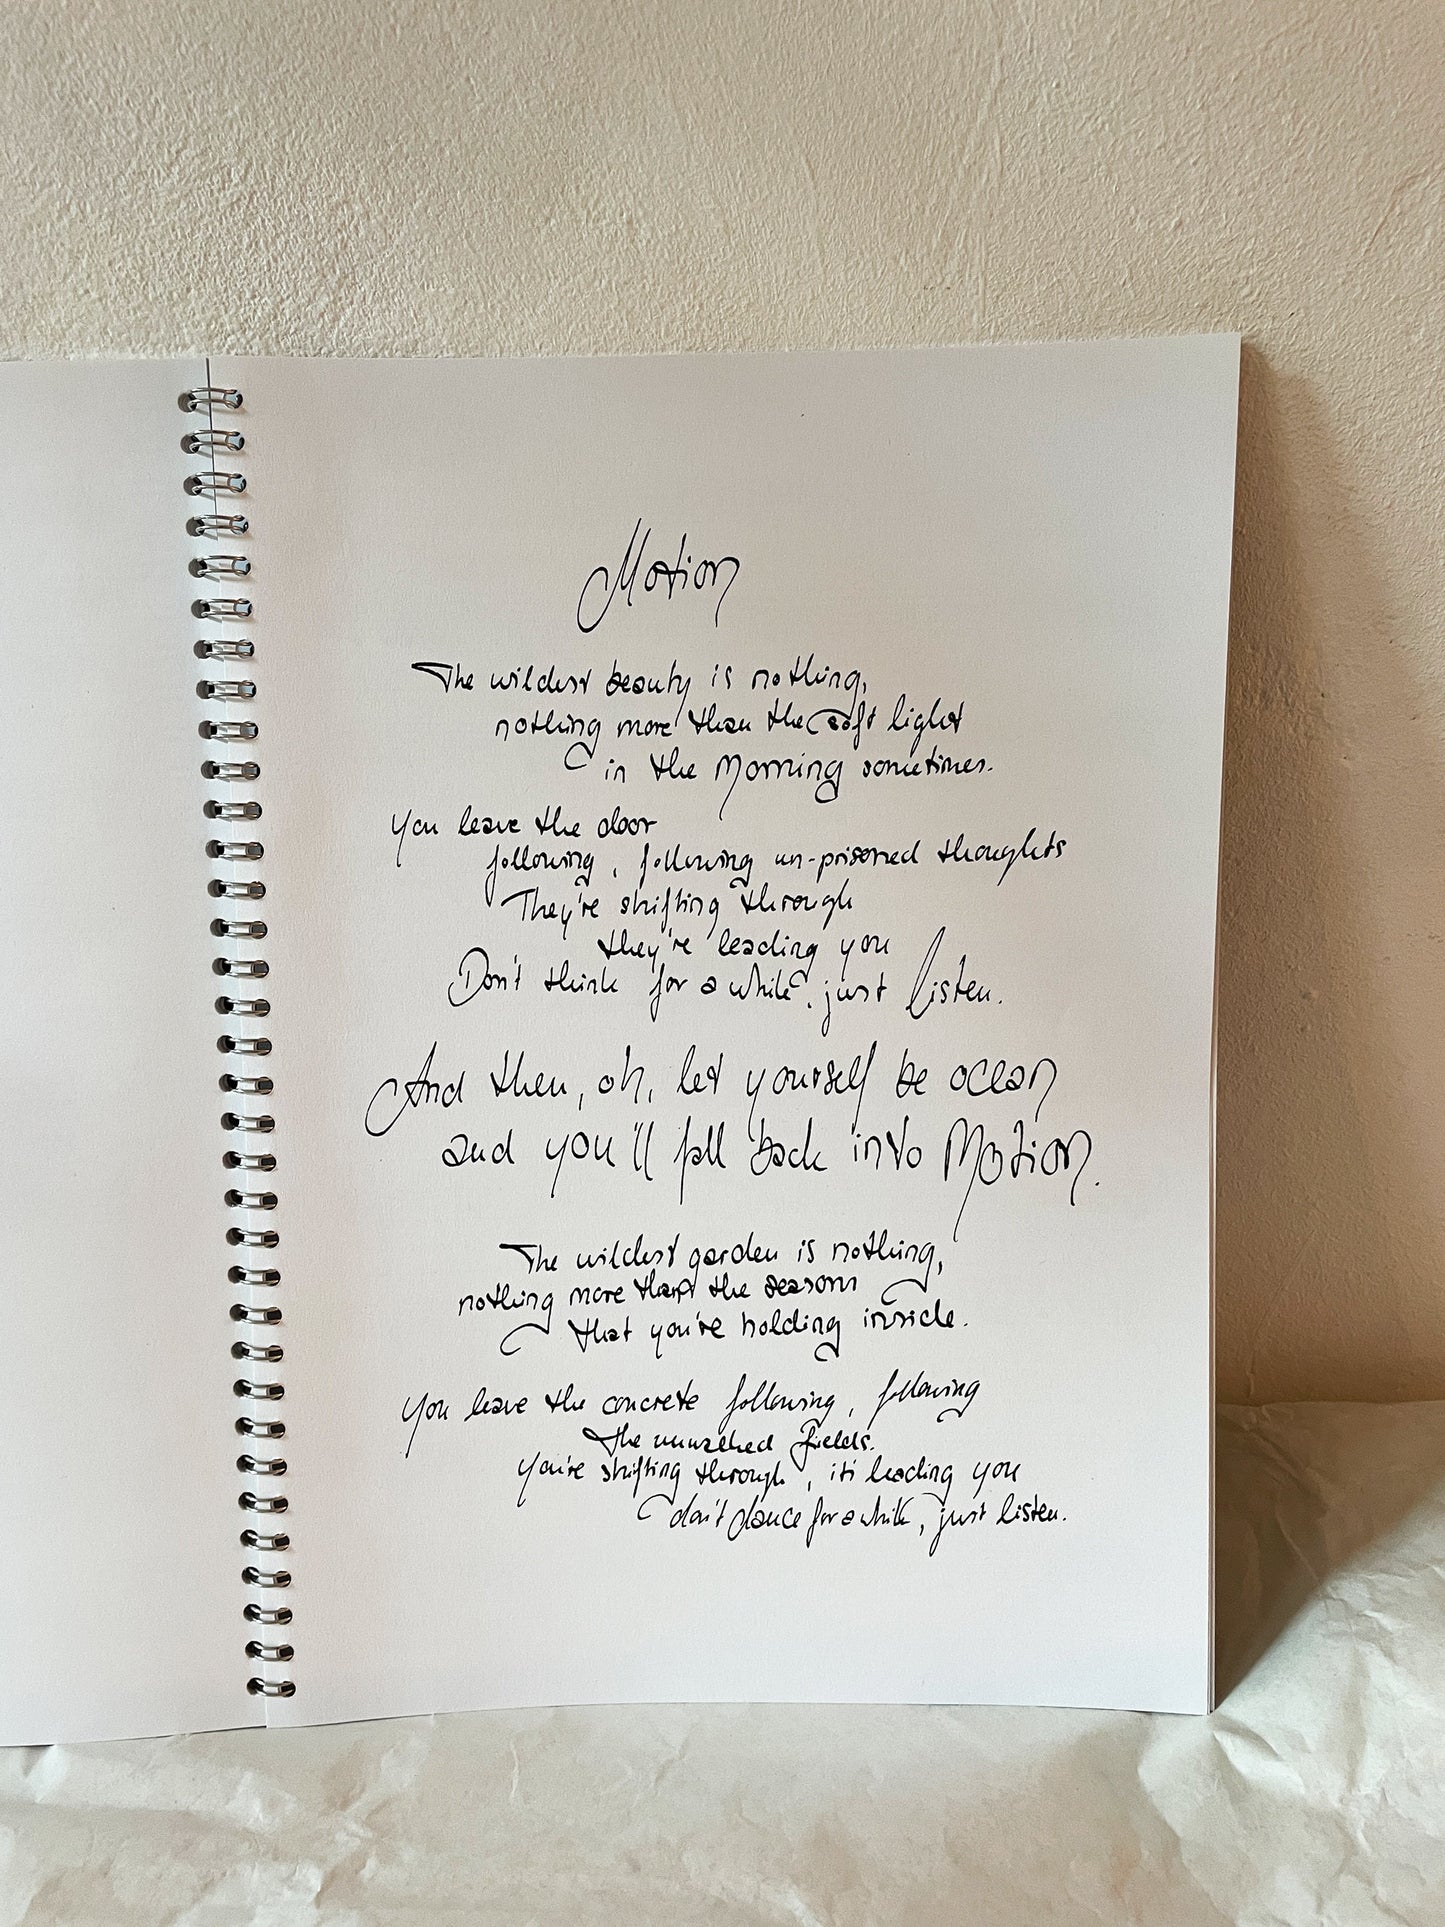 Motion
The wildest beauty is nothing,
nothing more than the soft light
in the morning sometimes.
You leave the door
following, following un-prisoned thoughts
They're shifting through
they're leading you
Don't think for a while, just listen.
And then, oh, let yourself be ocean
and you'll fall back into Motion.
The wildest garden is nothing,
nothing more than the seasons
that you're holding inside.
You leave the concrete following, following
the unwalked fields.
You're shifting through, it's leading you
don't dance for a while, just listen.